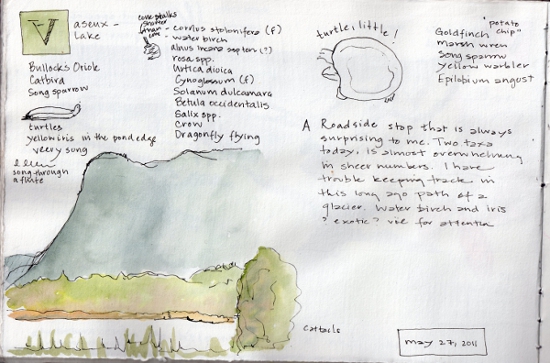 Vaseux - lake
Bullock's Oriole
Catbird
Song sparrow
turtles
yellow iris in the pond edge
veery sung
song through
a flute
cattails
- cornus stolonifera (f)
water birch
Alnus incana
rosa spp.
Urtica dioica
Cynoglossum (f)
Solanum dulcamara
Betula occidentalis
Salix spp.
Crow
Dragonfly flying
turtle, little!
"potato
chip"
Goldfinch
marsh wren
song sparrow
Yellow warbler
Epilobium angust
A Roadside stop that is always
surprising to me. Two taxa
today, is almost overwhelming
in sheer numbers. I have
trouble keeping track in
this long ago path of a
glacier. Water birch and iris
? exotic? vie for attention
cattails
may 27, 2011